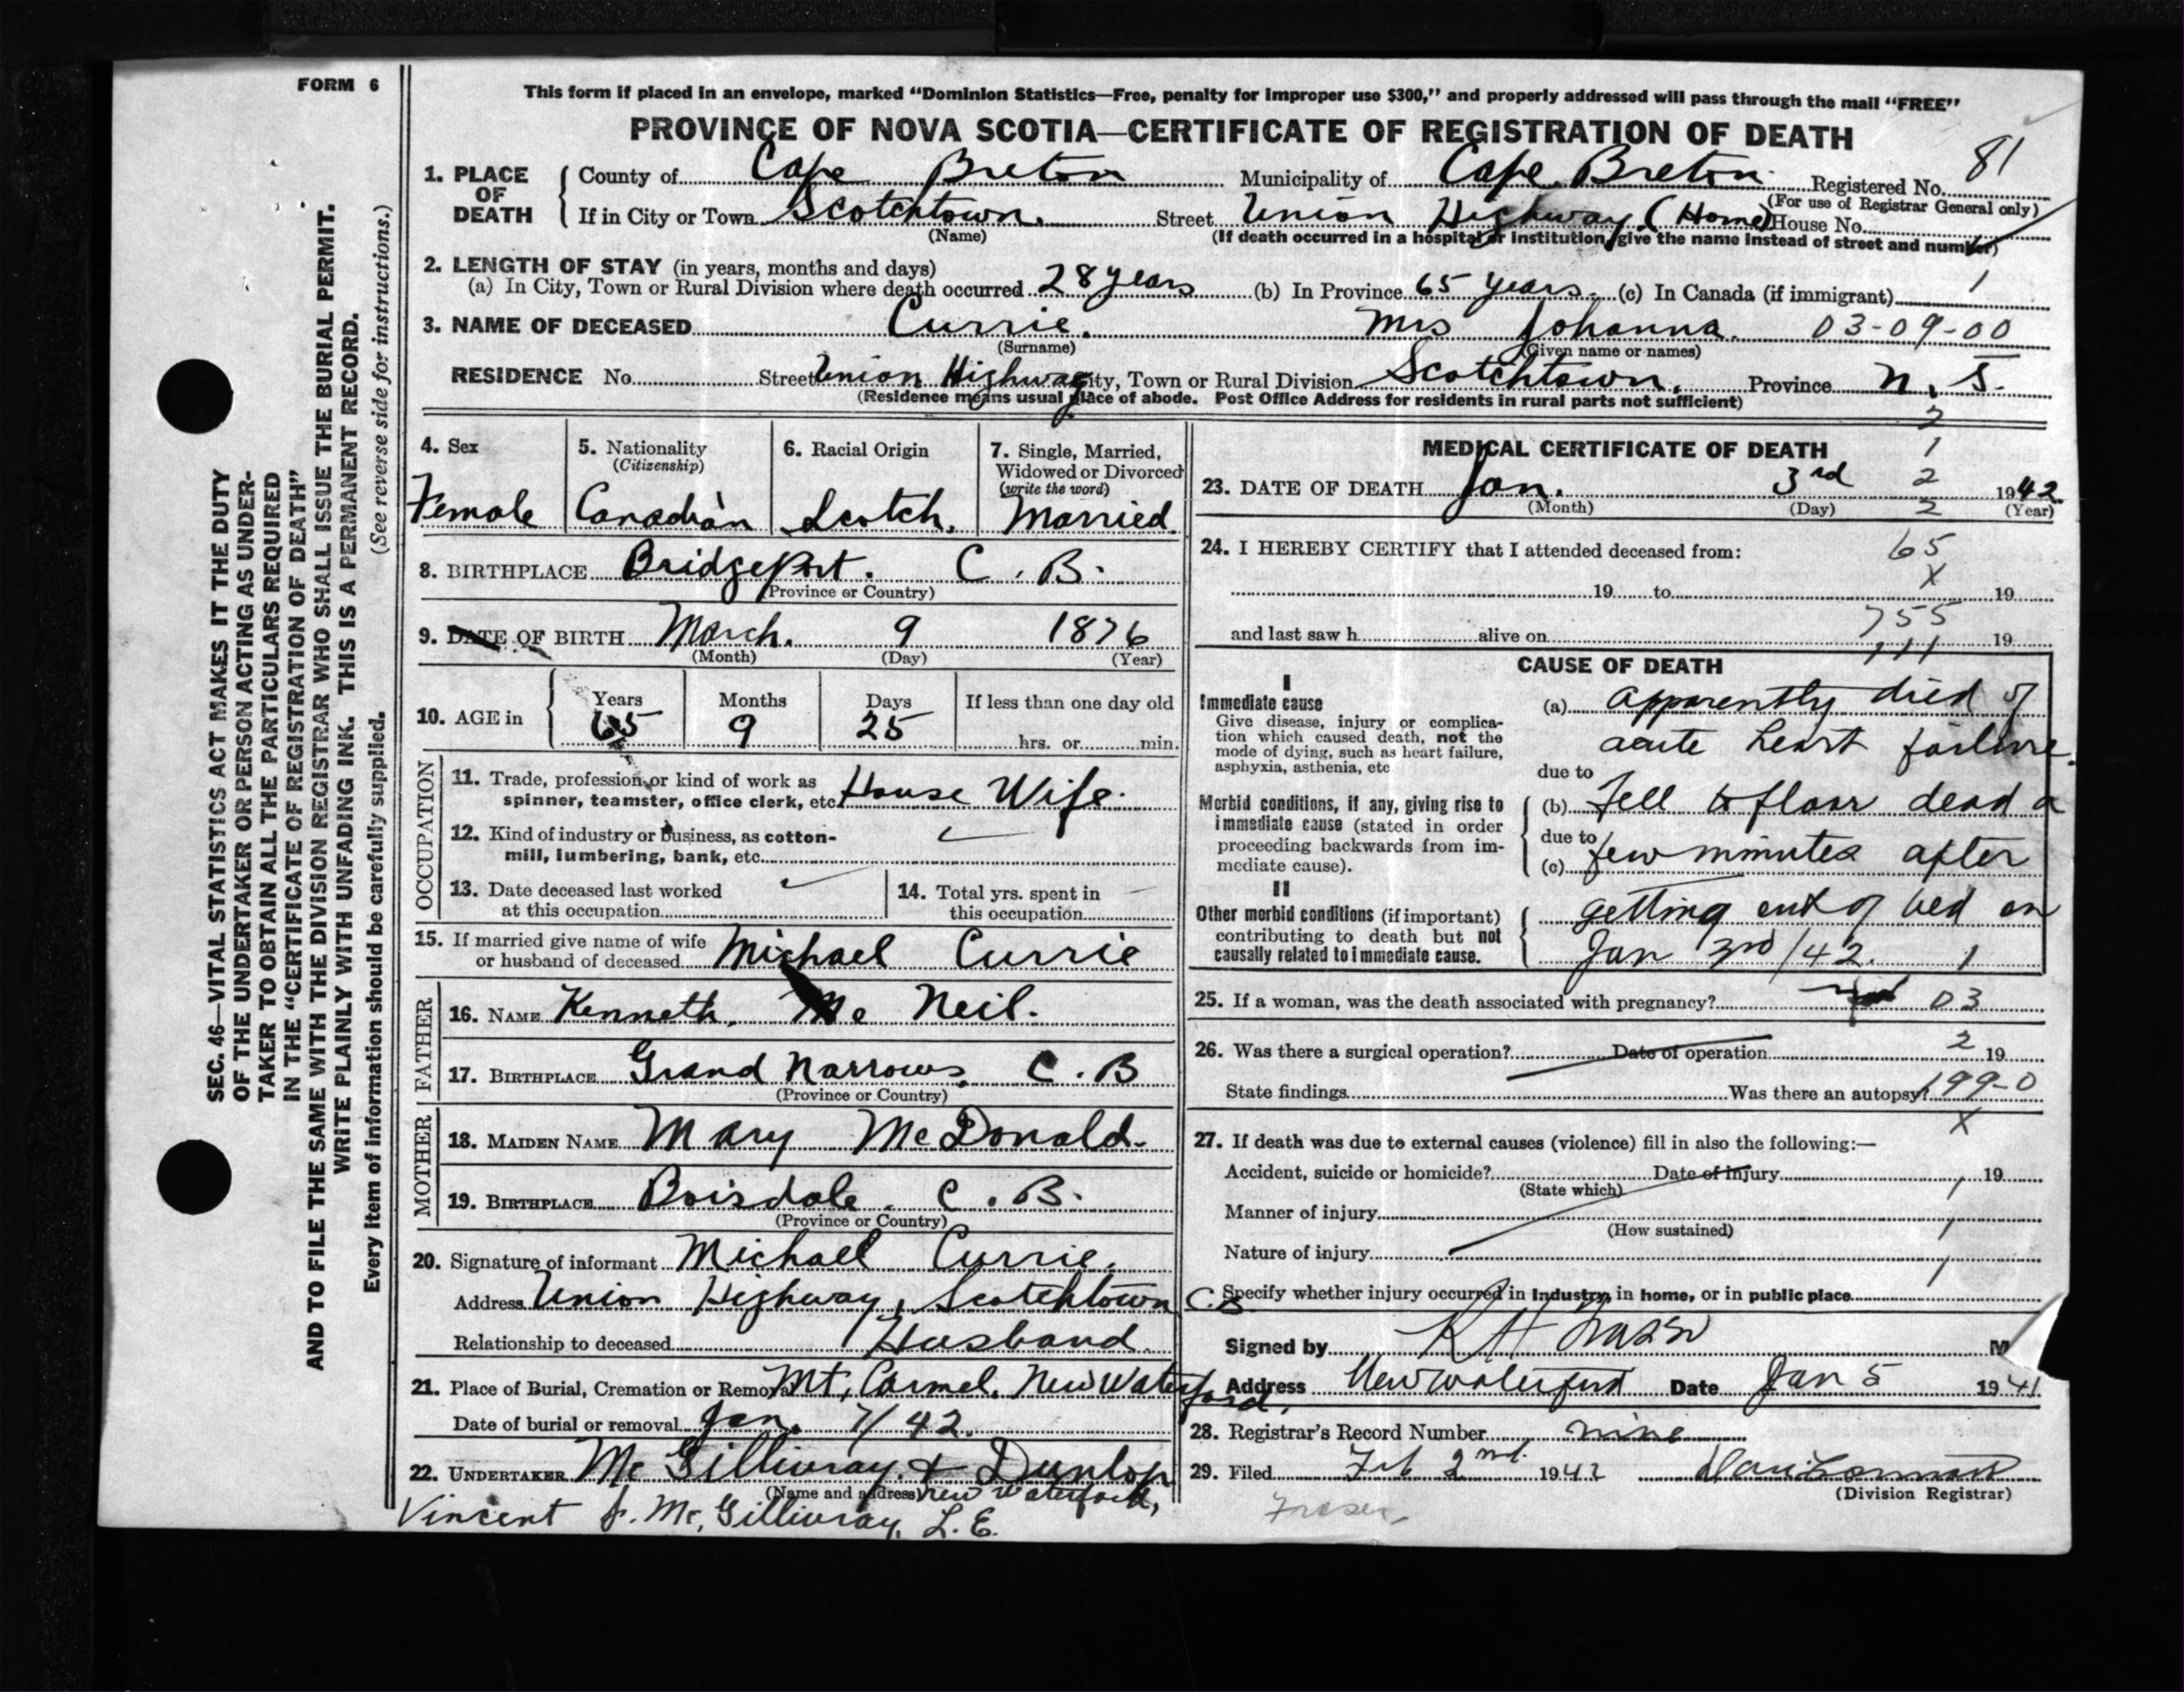 FORM 6
SEC. 46—VITAL STATISTICS ACT MAKES IT THE DUTY
OF THE UNDERTAKER OR PERSON ACTING AS UNDER-
TAKER TO OBTAIN ALL THE PARTICULARS REQUIRED
IN THE "CERTIFICATE OF REGISTRATION OF DEATH"
AND TO FILE THE SAME WITH THE DIVISION REGISTRAR WHO SHALL ISSUE THE BURIAL PERMIT.
WRITE PLAINLY WITH UNFADING INK. THIS IS A PERMANENT RECORD.
Every item of information should be carefully supplied. (See reverse side for instructions.)
This form if placed in an envelope, marked "Dominion Statistics—Free, penalty for improper use $300," and properly addressed will pass through the mail "FREE"
PROVINCE OF NOVA SCOTIA—CERTIFICATE OF REGISTRATION OF DEATH
1. PLACE OF DEATH County of Cape Breton Municipality of Cape Breton Registered No. 81
(For use of Registrar General only)
If in City or Town Scotchtown. Street Union Highway. (Home) House No.
(Name) (If death occurred in a hospital or institution, give the name instead of street and number)
2. LENGTH OF STAY (in years, months and days)
(a) In City, Town or Rural Division where death occurred 28 years (b) In Province 65 years. (c) In Canada (if immigrant) 1
3. NAME OF DECEASED Currie. Mrs Johanna. 03-09-00
(Surname) (Given name or names)
RESIDENCE No. Street Union Highway City, Town or Rural Division Scotchtown. Province N. S.
(Residence means usual place of abode. Post Office Address for residents in rural parts not sufficient)
4. Sex Female
5. Nationality (Citizenship) Canadian
6. Racial Origin Scotch.
7. Single, Married, Widowed or Divorced (write the word) Married.
8. BIRTHPLACE Bridgeport. C. B.
(Province or Country)
9. DATE OF BIRTH March. 9 1876
(Month) (Day) (Year)
10. AGE in Years 65 Months 9 Days 25 If less than one day old
hrs. or min.
OCCUPATION
11. Trade, profession or kind of work as
spinner, teamster, office clerk, etc. House Wife.
12. Kind of industry or business, as cotton-
mill, lumbering, bank, etc.
13. Date deceased last worked
at this occupation
14. Total yrs. spent in
this occupation
15. If married give name of wife
or husband of deceased Michael Currie
FATHER
16. NAME Kenneth. Mc Neil.
17. BIRTHPLACE Grand Narrows, C. B
(Province or Country)
MOTHER
18. MAIDEN NAME Mary McDonald.
19. BIRTHPLACE Boisdale. C. B.
(Province or Country)
20. Signature of informant Michael Currie.
Address Union Highway, Scotchtown C.B
Relationship to deceased Husband.
21. Place of Burial, Cremation or Removal Mt, Carmel. New Waterford.
Date of burial or removal Jan. 7/42.
22. UNDERTAKER Mc Gillivray. & Dunlop
(Name and address) New Waterford,
Vincent J. Mc, Gillivray, L. E.
MEDICAL CERTIFICATE OF DEATH
2
1
2
2
23. DATE OF DEATH Jan. 3rd 1942
(Month) (Day) (Year)
24. I HEREBY CERTIFY that I attended deceased from: 65
X
19 to 19
755
and last saw h alive on 19
111
CAUSE OF DEATH
I
Immediate cause
Give disease, injury or complica-
tion which caused death, not the
mode of dying, such as heart failure,
asphyxia, asthenia, etc
(a) apparently died of
acute heart failure.
due to
Morbid conditions, if any, giving rise to
immediate cause (stated in order
proceeding backwards from im-
mediate cause).
(b) Fell to floor dead a
due to
(c) few minutes after
II
Other morbid conditions (if important)
contributing to death but not
causally related to immediate cause.
getting out of bed on
Jan 3rd/42. 1
25. If a woman, was the death associated with pregnancy? 03
26. Was there a surgical operation? Date of operation 2 19
State findings Was there an autopsy? 199-0
X
27. If death was due to external causes (violence) fill in also the following:—
Accident, suicide or homicide? Date of injury 19
(State which) 1
Manner of injury
(How sustained) 1
Nature of injury 1
Specify whether injury occurred in Industry, in home, or in public place
Signed by K H Fraser M
Address New Waterford Date Jan 5 1941
28. Registrar's Record Number nine
29. Filed Feb 2nd. 1942
(Division Registrar)
Fraser